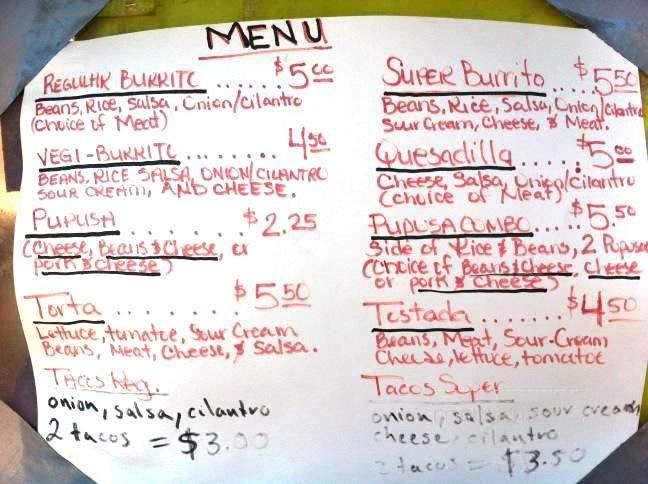 MENU
REGULAR BURRITO ...... $5.00
Beans, Rice, Salsa, Onion/cilantro
(Choice of Meat)
VEGI-BURRITO ........ 4.50
BEANS, RICE SALSA, ONION/CILANTRO
SOUR CREAM, AND CHEESE.
PUPUSA ........ $2.25
(Cheese, Beans & Cheese, or
pork & cheese)
Torta ........ $5.50
Lettuce, tomatoe, Sour Cream
Beans, Meat, Cheese, & Salsa.
Tacos Reg.
onion, salsa, cilantro
2 tacos = $3.00
SUPER Burrito ..... $5.50
Beans, Rice, Salsa, Onion/cilantro
Sour Cream, Cheese, & Meat.
Quesadilla ..... $5.00
Cheese, Salsa, Onion/Cilantro
(Choice of Meat)
PUPUSA COMBO .... $5.50
Side of Rice & Beans, 2 Pupusas
(Choice of Beans & Cheese, cheese
or pork & cheese)
Tostada ....... $4.50
Beans, Meat, Sour-Cream
Cheese, lettuce, tomatoe
Tacos Super
onion, salsa, sour cream
cheese, cilantro
2 tacos = $3.50